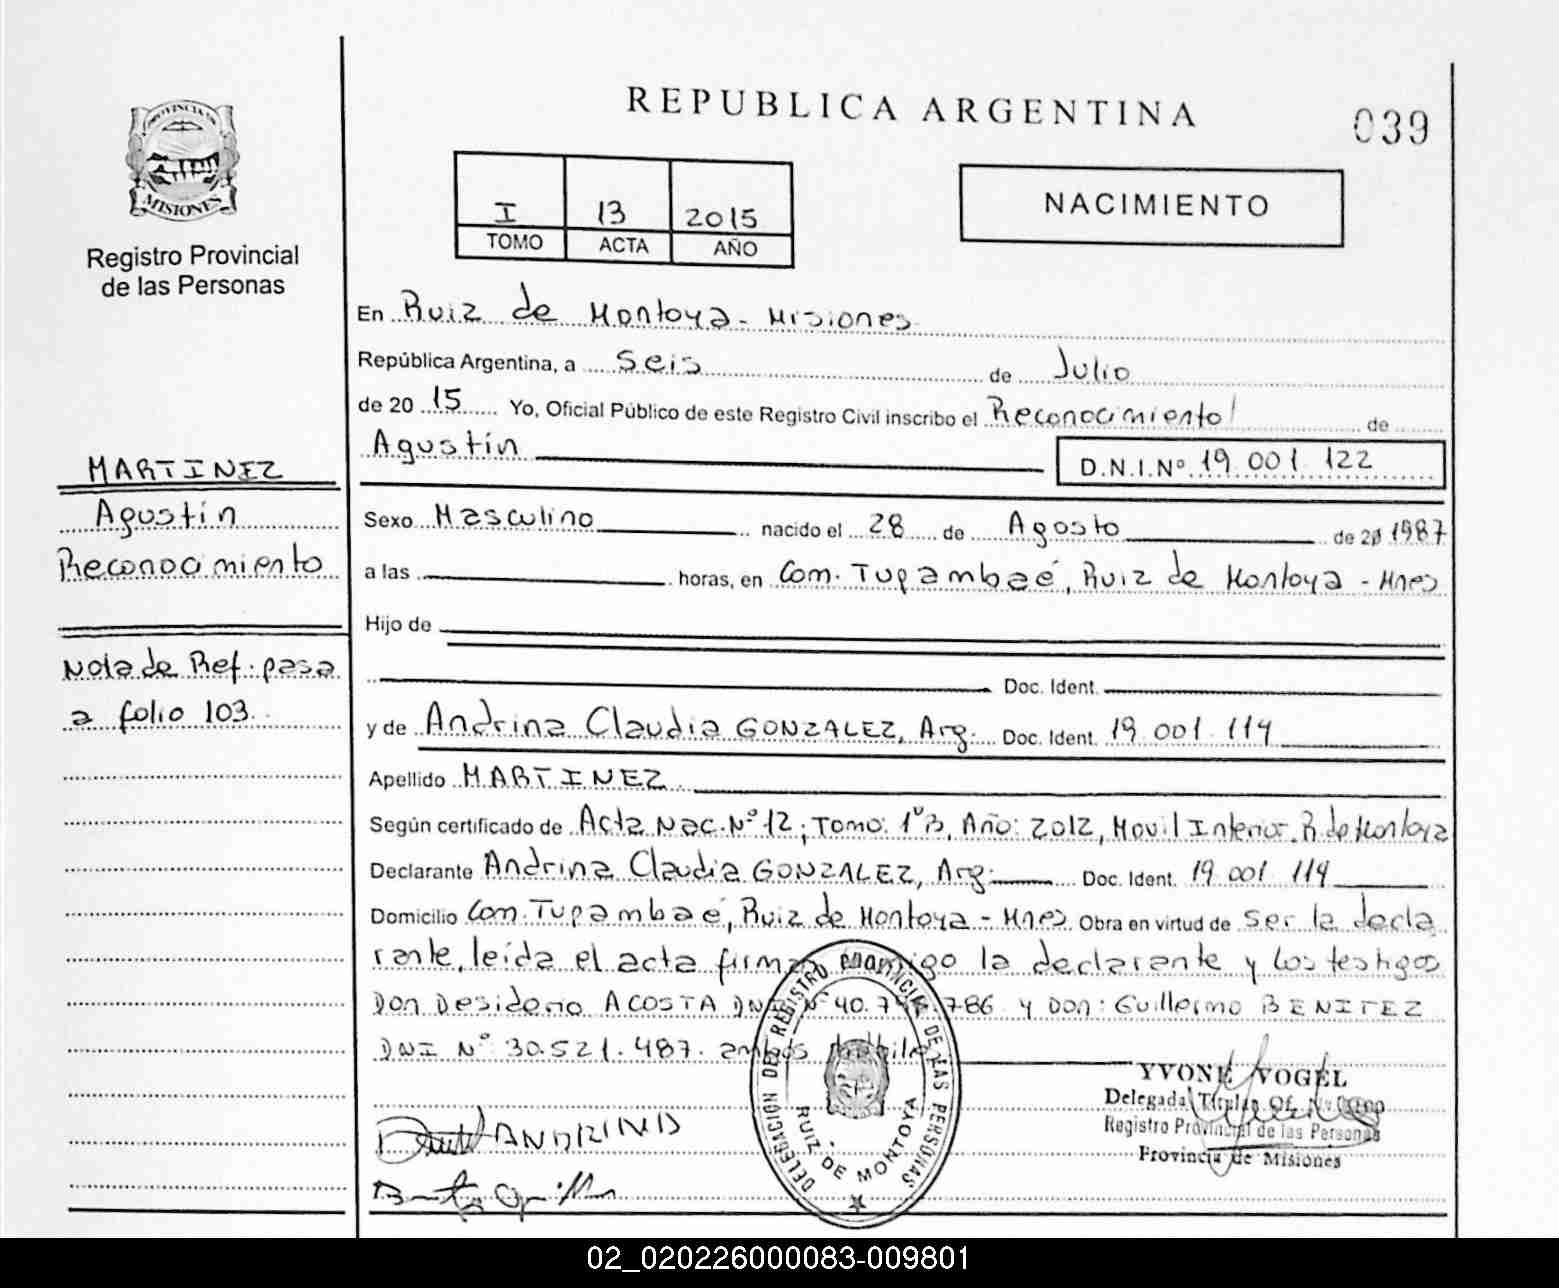 REPUBLICA ARGENTINA
039
PROVINCIA DE
MISIONES
Registro Provincial
de las Personas
I 13 2015
TOMO ACTA AÑO
NACIMIENTO
En Ruiz de Montoya - Misiones
República Argentina, a Seis de Julio
de 20 15 Yo, Oficial Público de este Registro Civil inscribo el Reconocimiento de
Agustín D.N.I.Nº 19.001.122
MARTINEZ
Agustín
Reconocimiento
Sexo Masculino nacido el 28 de Agosto de 20 1987
a las horas, en Com. Tupambaé, Ruiz de Montoya - Mnes
Hijo de
Nota de Ref: pasa
a folio 103.
Doc. Ident.
y de Andrina Claudia GONZALEZ, Arg. Doc. Ident. 19.001.114
Apellido MARTINEZ
Según certificado de Acta Nac. Nº 12; Tomo: 1ºB, Año: 2012, Movil Interior R. de Montoya
Declarante Andrina Claudia GONZALEZ, Arg. Doc. Ident. 19.001.114
Domicilio Com. Tupambaé, Ruiz de Montoya - Mnes Obra en virtud de ser la decla
rante, leída el acta firma conmigo la declarante y los testigos
Don Desiderio ACOSTA DNI Nº 40. 786 y Don: Guillermo BENITEZ
DNI Nº 30.521.487. ambos
DELEGACION DEL REGISTRO PROVINCIAL DE LAS PERSONAS
RUIZ DE MONTOYA
YVONE VOGEL
Delegada Titular Of.
Registro Provincial de las Personas
Provincia de Misiones
ANDRINA
02_020226000083-009801